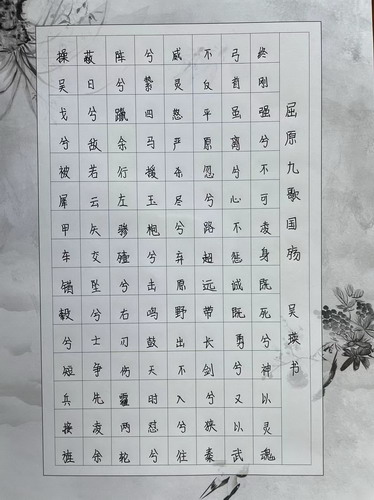 屈原九歌国殇 吴瑛书
操吴戈兮被犀甲车错毂兮短兵接旌
蔽日兮敌若云矢交坠兮士争先凌余
阵兮躐余行左骖殪兮右刃伤霾两轮
兮絷四马援玉枹兮击鸣鼓天时怼兮
威灵怒严杀尽兮弃原野出不入兮往
不反平原忽兮路超远带长剑兮挟秦
弓首虽离兮心不惩诚既勇兮又以武
终刚强兮不可凌身既死兮神以灵魂